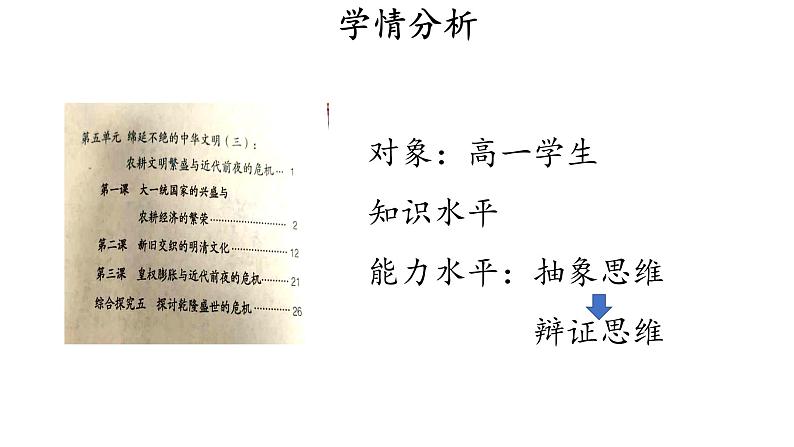 学情分析
第五单元 绵延不绝的中华文明（三）：
农耕文明繁盛与近代前夜的危机… 1
第一课 大一统国家的兴盛与
农耕经济的繁荣……………… 2
第二课 新旧交织的明清文化…………… 12
第三课 皇权膨胀与近代前夜的危机……… 21
综合探究五 探讨乾隆盛世的危机………… 26
对象：高一学生
知识水平
能力水平：抽象思维
辩证思维